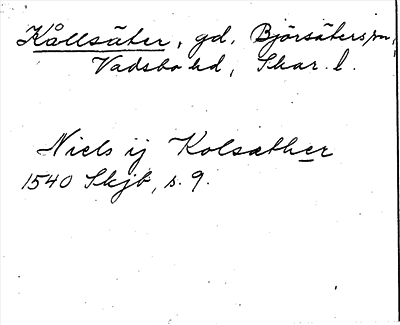 Kållsäter, gd, Björsäters sn,
Vadsbo hd, Skar. l.
Niels ij Kolsæther
1540 Skjb, s. 9.